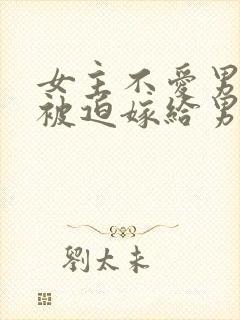 女主不愛男
被迫嫁給男
劉太未